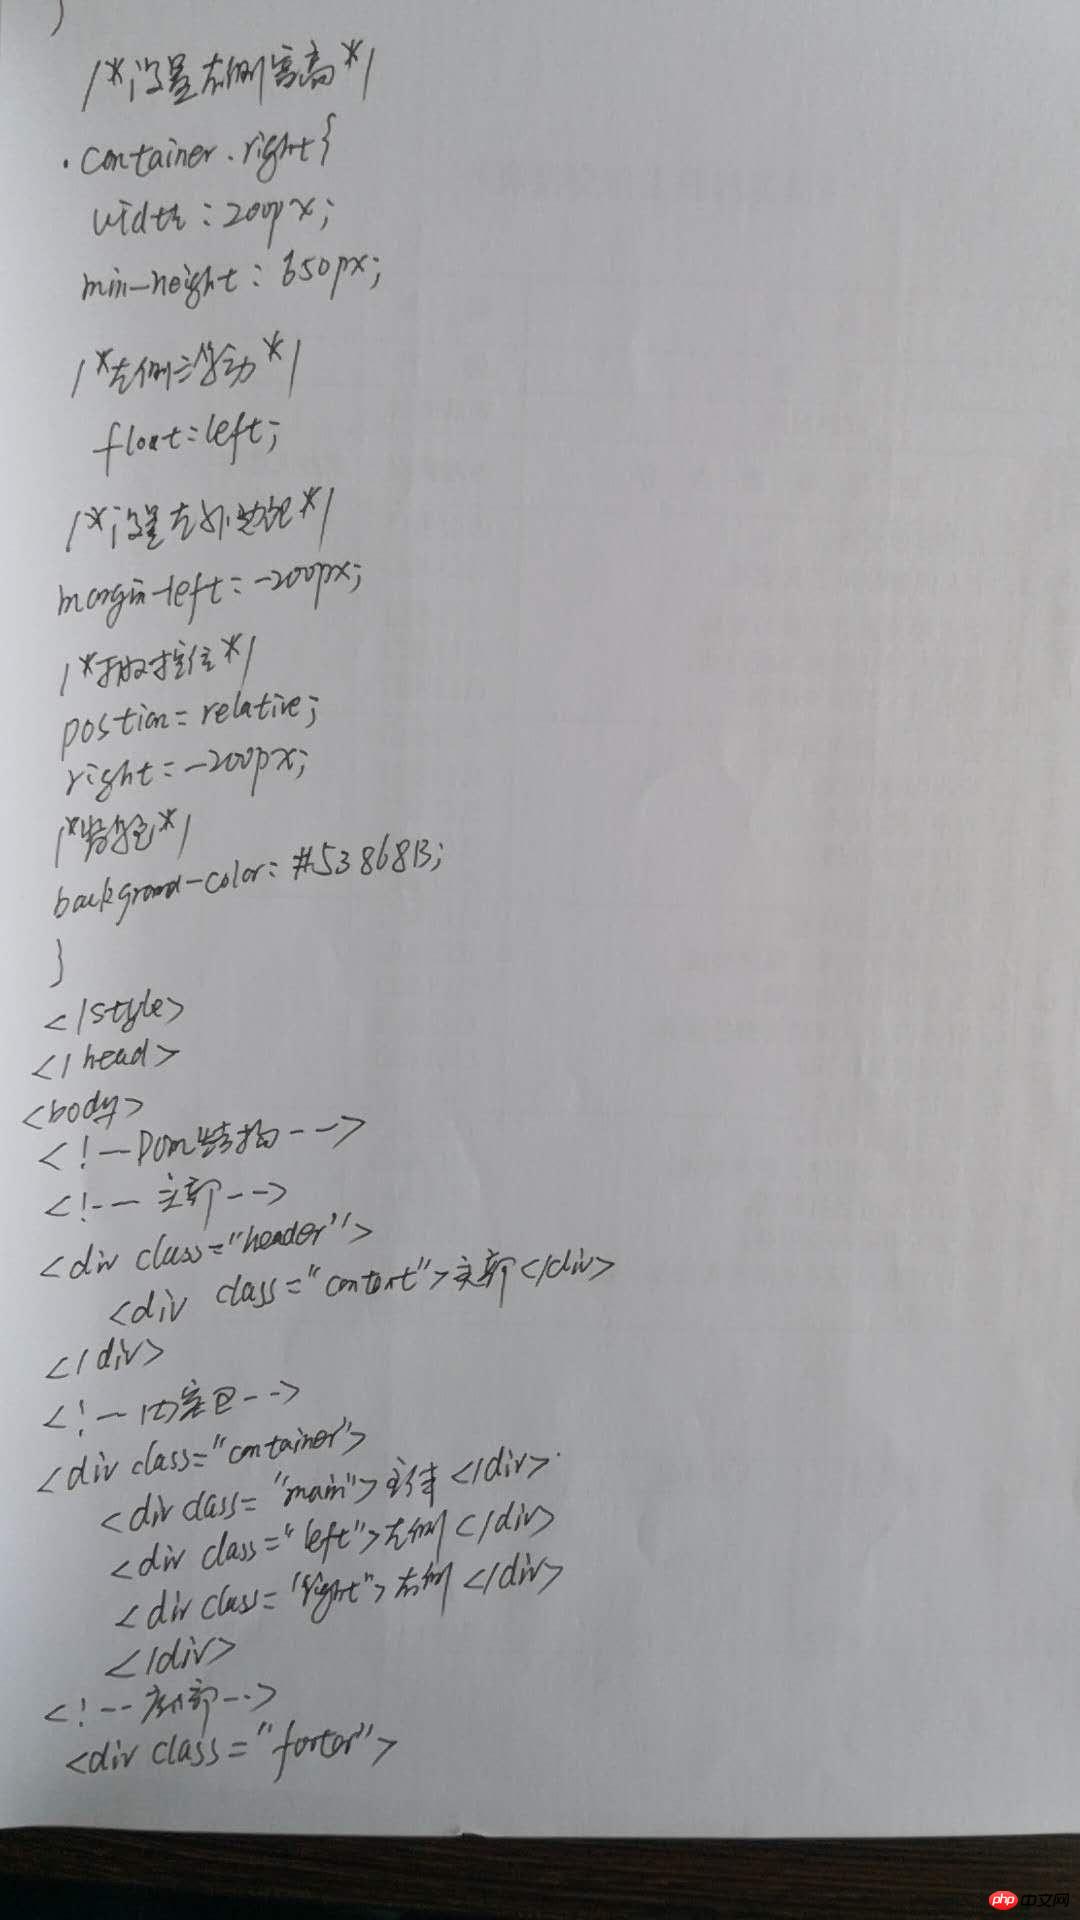 }
/*设置右侧宽高*/
.container .right{
width:200px;
min-height:650px;
/*左侧浮动*/
float:left;
/*设置左外边距*/
margin-left:-200px;
/**/
position=relative;
right:-200px;
/**/
background-color:#53868B;
}
</style>
</head>
<body>
<!--DOM结构-->
<!-- 主部-->
<div class="header">
<div class="content">主部</div>
</div>
<!--内容区-->
<div class="container">
<div class="main">主体</div>
<div class="left">左侧</div>
<div class="right">右侧</div>
</div>
<!-- 部-->
<div class="footer">
php 中文网